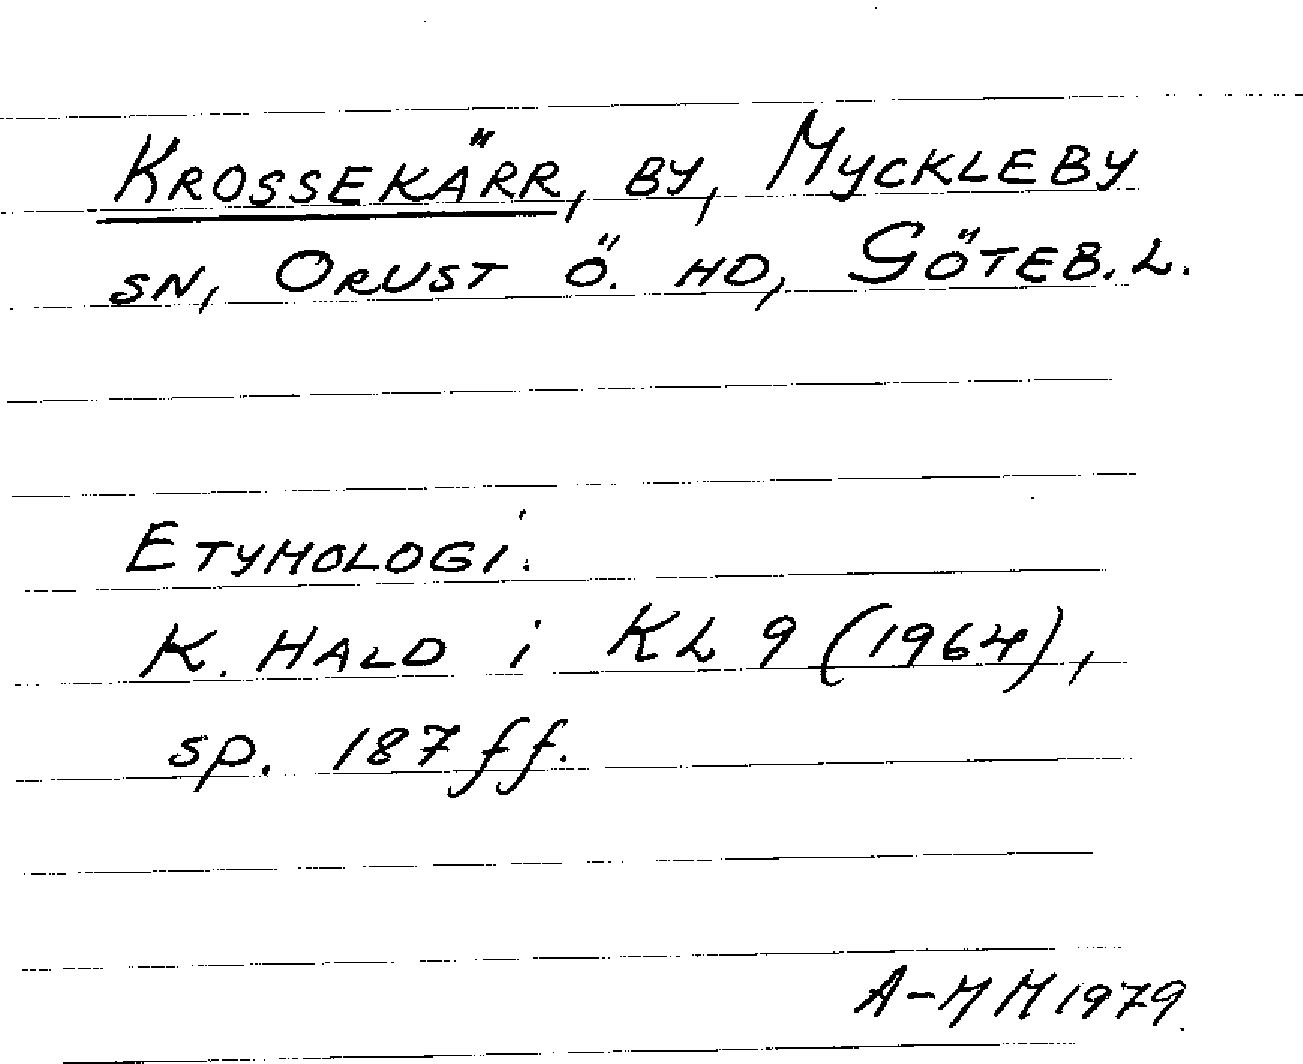 KROSSEKÄRR, BY, MYCKLEBY
SN, ORUST Ö. HD, GÖTEB.L.
ETYMOLOGI:
K. HALD i KL 9 (1964),
sp. 187 ff.
A-MM 1979